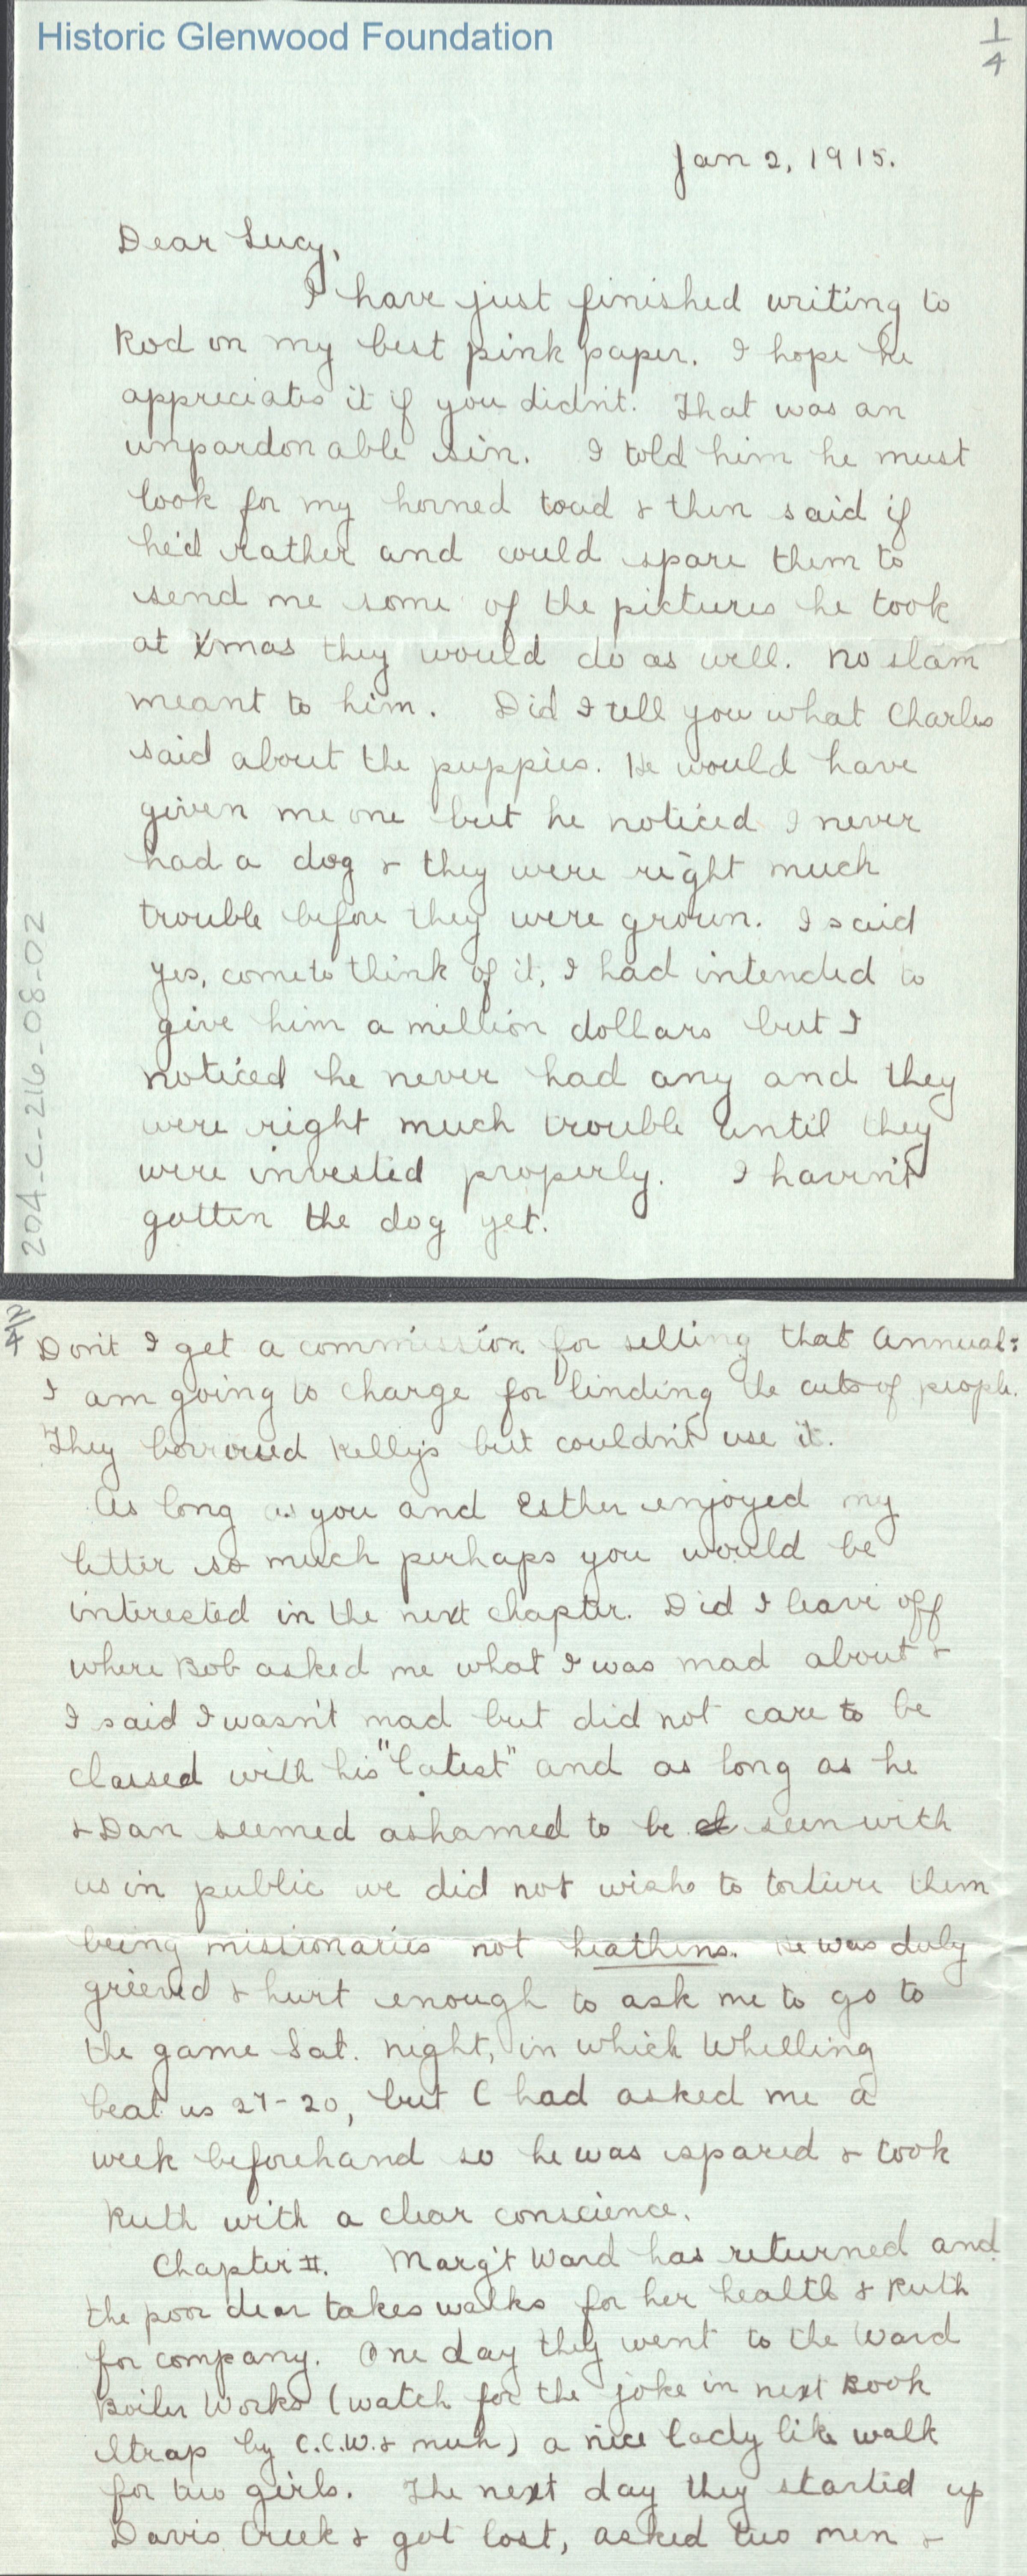 Historic Glenwood Foundation
1/4
Jan 2, 1915.
Dear Lucy,
I have just finished writing to
Rod on my best pink paper. I hope he
appreciates it if you didn't. That was an
unpardonable sin. I told him he must
look for my horned toad & then said if
he'd rather and could spare them to
send me some of the pictures he took
at Xmas they would do as well. No slam
meant to him. Did I tell you what Charles
said about the puppies. He would have
given me one but he noticed I never
had a dog & they were right much
trouble before they were grown. I said
yes, come to think of it, I had intended to
give him a million dollars but I
noticed he never had any and they
were right much trouble until they
were invested properly. I haven't
gotten the dog yet.
204-C-216-08-02
2/4
Don't I get a commission for selling that Annual?
I am going to charge for lending the cuts of people.
They borrowed Kelly's but couldn't use it.
As long as you and Esther enjoyed my
letter so much perhaps you would be
interested in the next chapter. Did I leave off
where Bob asked me what I was mad about &
I said I wasn't mad but did not care to be
classed with his "latest" and as long as he
& Dan seemed ashamed to be seen with
us in public we did not wish to torture them
being missionaries not heathens. He was duly
grieved & hurt enough to ask me to go to
the game Sat. night, in which Whelling
beat us 27-20, but C had asked me a
week beforehand so he was spared & took
Ruth with a clear conscience.
Chapter II. Marg't Ward has returned and
the poor dear takes walks for her health & Ruth
for company. One day they went to the Ward
Boiler Works (watch for the joke in next Book
Strap by C.C.W. & muh) a nice lady like walk
for two girls. The next day they started up
Davis Creek & got lost, asked two men &